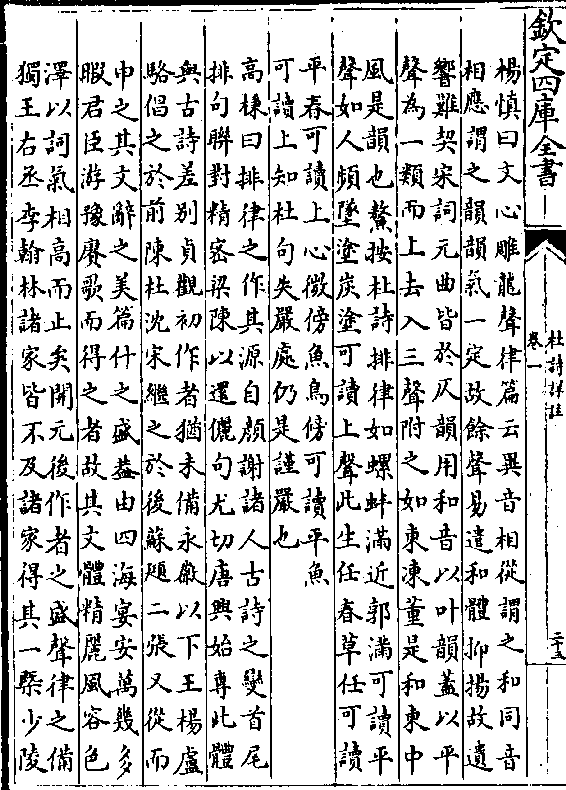 欽定四庫全書
杜詩詳註
卷一
二十五
楊慎曰文心雕龍聲律篇云異音相從謂之和同音
相應謂之韻韻氣一定故餘聲易遣和體抑揚故遺
響難契宋詞元曲皆於仄韻用和音以叶韻蓋以平
聲為一類而上去入三聲附之如東凍董是和東中
風是韻也鰲按杜詩排律如螺蚌滿近郭滿可讀平
聲如人頻墜塗炭塗可讀上聲此生任春草任可讀
平春可讀上心微傍魚鳥傍可讀平魚
可讀上知杜句失嚴處仍是謹嚴也
高棅曰排律之作其源自顏謝諸人古詩之變首尾
排句聯對精密梁陳以還儷句尤切唐興始專此體
與古詩差別貞觀初作者猶未備永徽以下王楊盧
駱倡之於前陳杜沈宋繼之於後蘇頲二張又從而
申之其文辭之美篇什之盛益由四海宴安萬幾多
暇君臣游豫賡歌而得之者故其文體精麗風容色
澤以詞氣相高而止矣開元後作者之盛聲律之備
獨王右丞李翰林諸家皆不及諸家得其一槩少陵